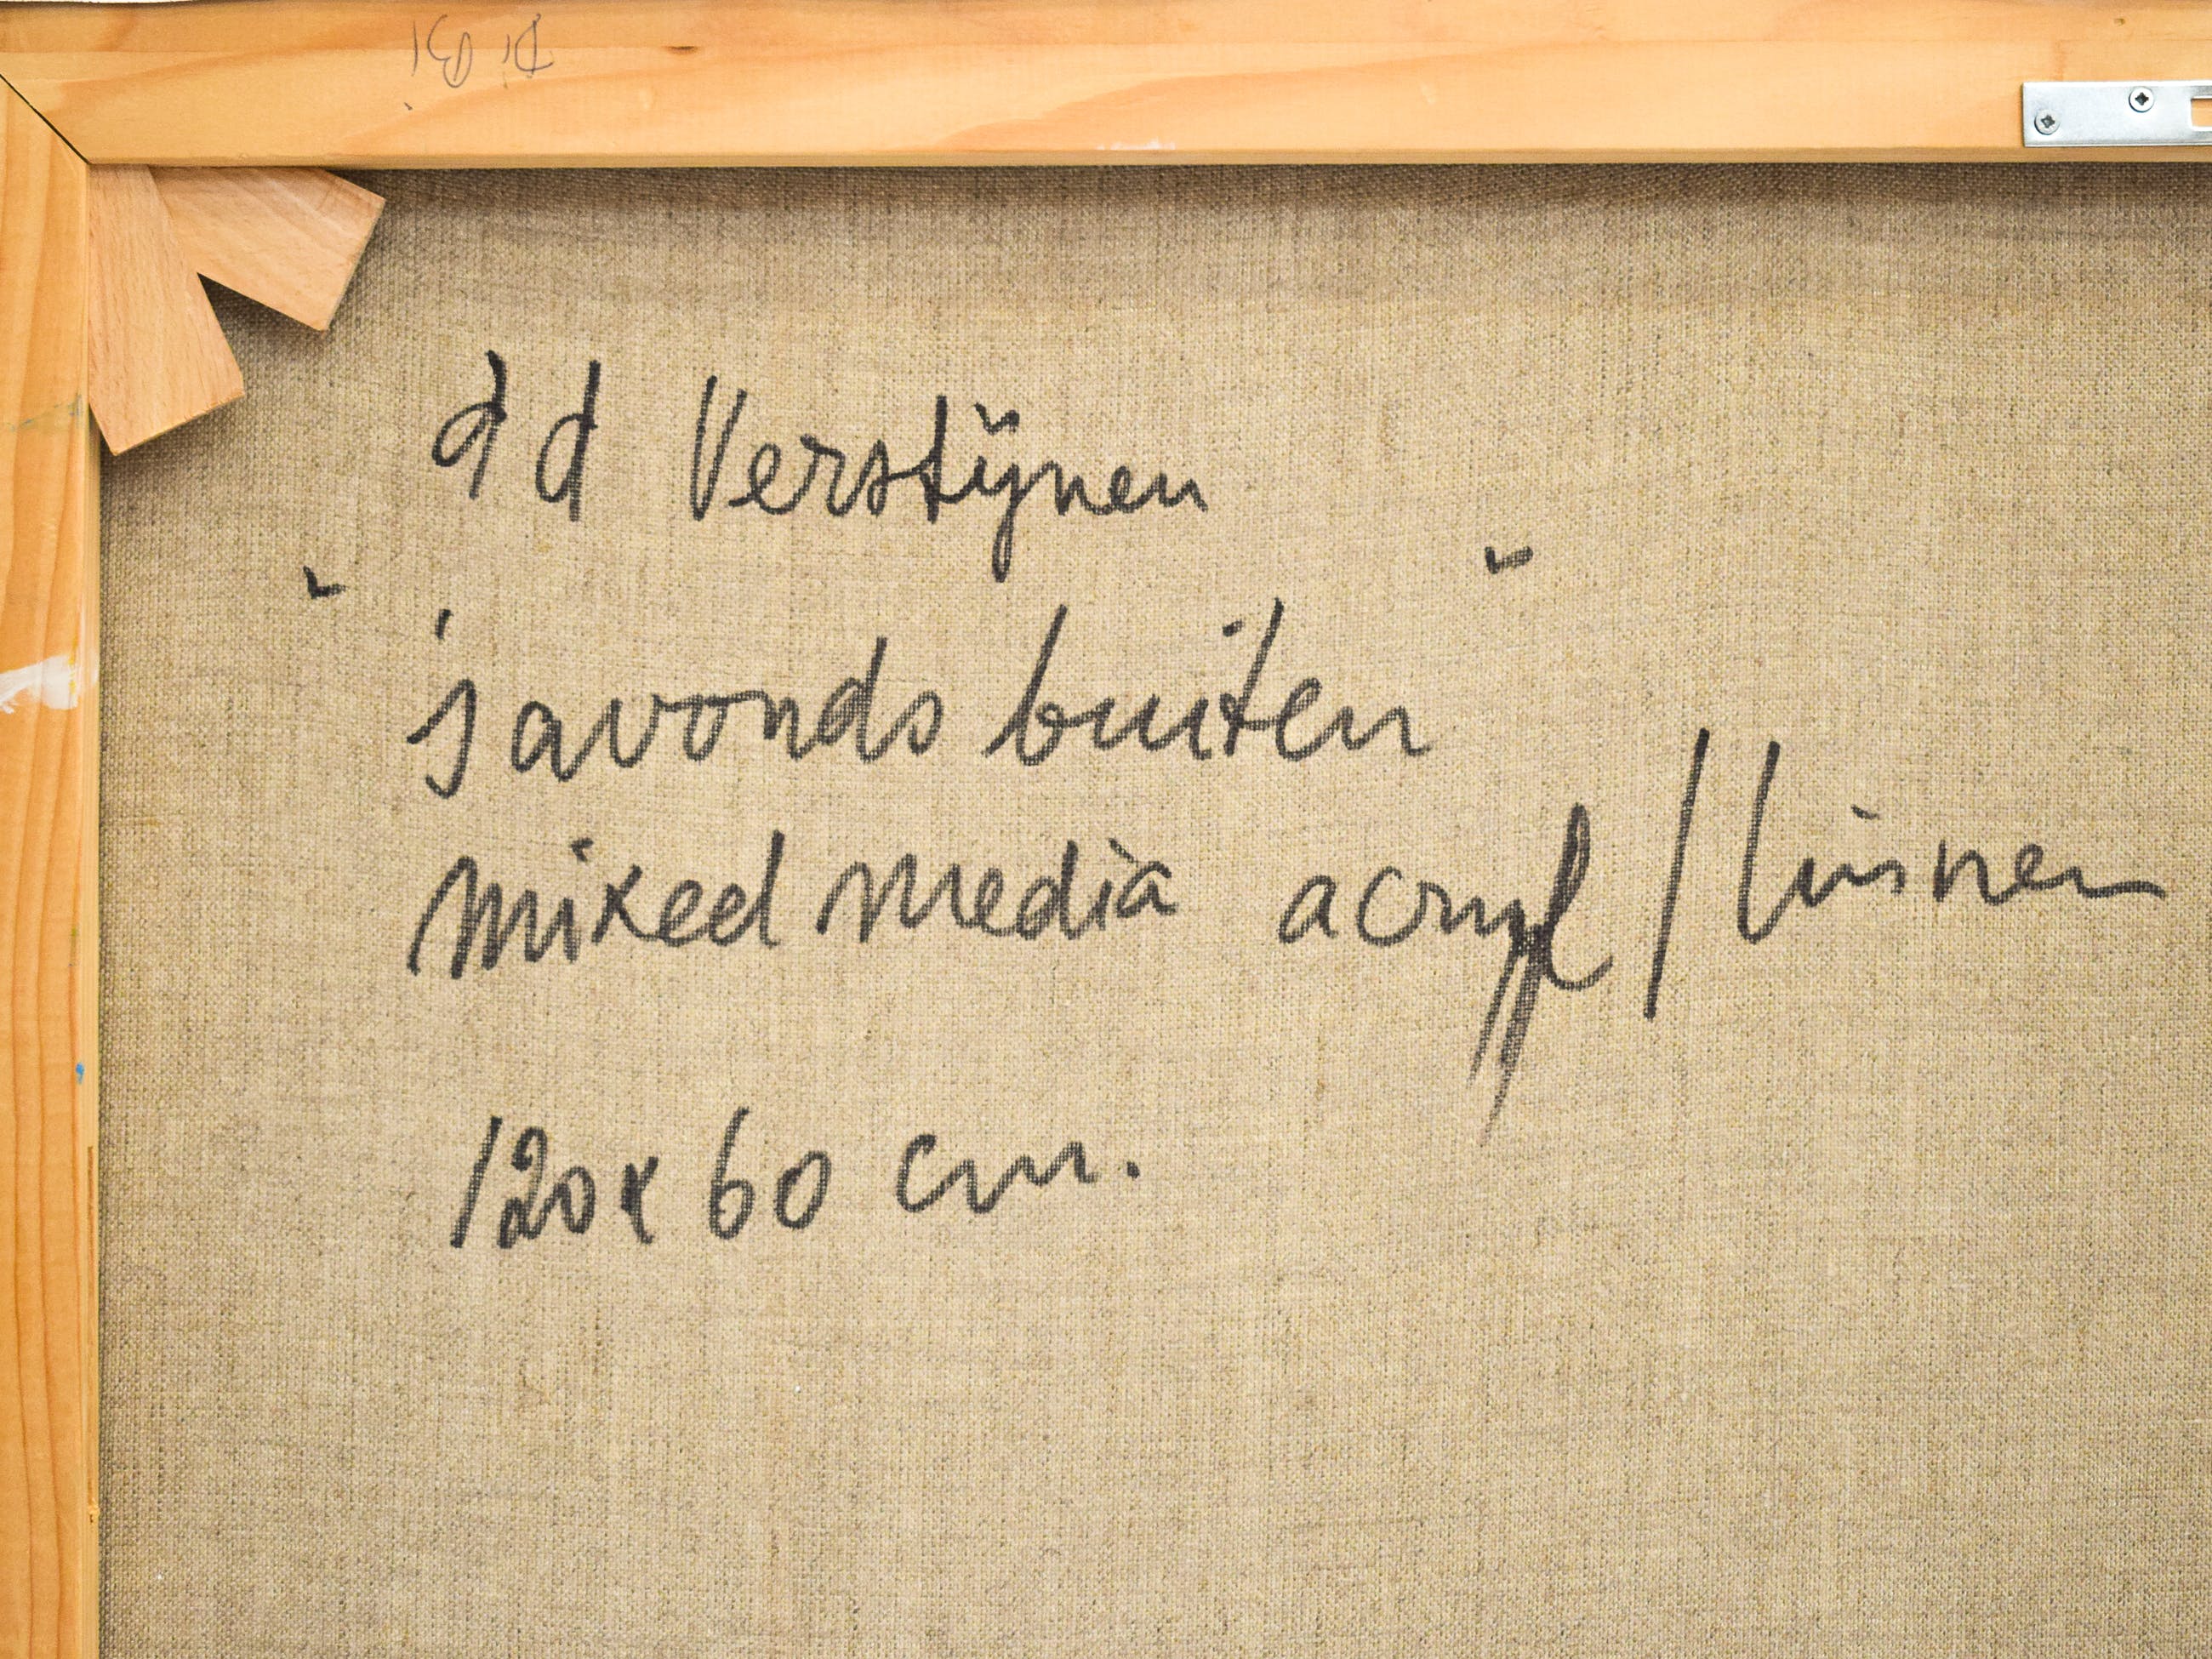 ad Verstijnen
" 's avonds buiten "
mixed media acryl / linnen
120 x 60 cm.